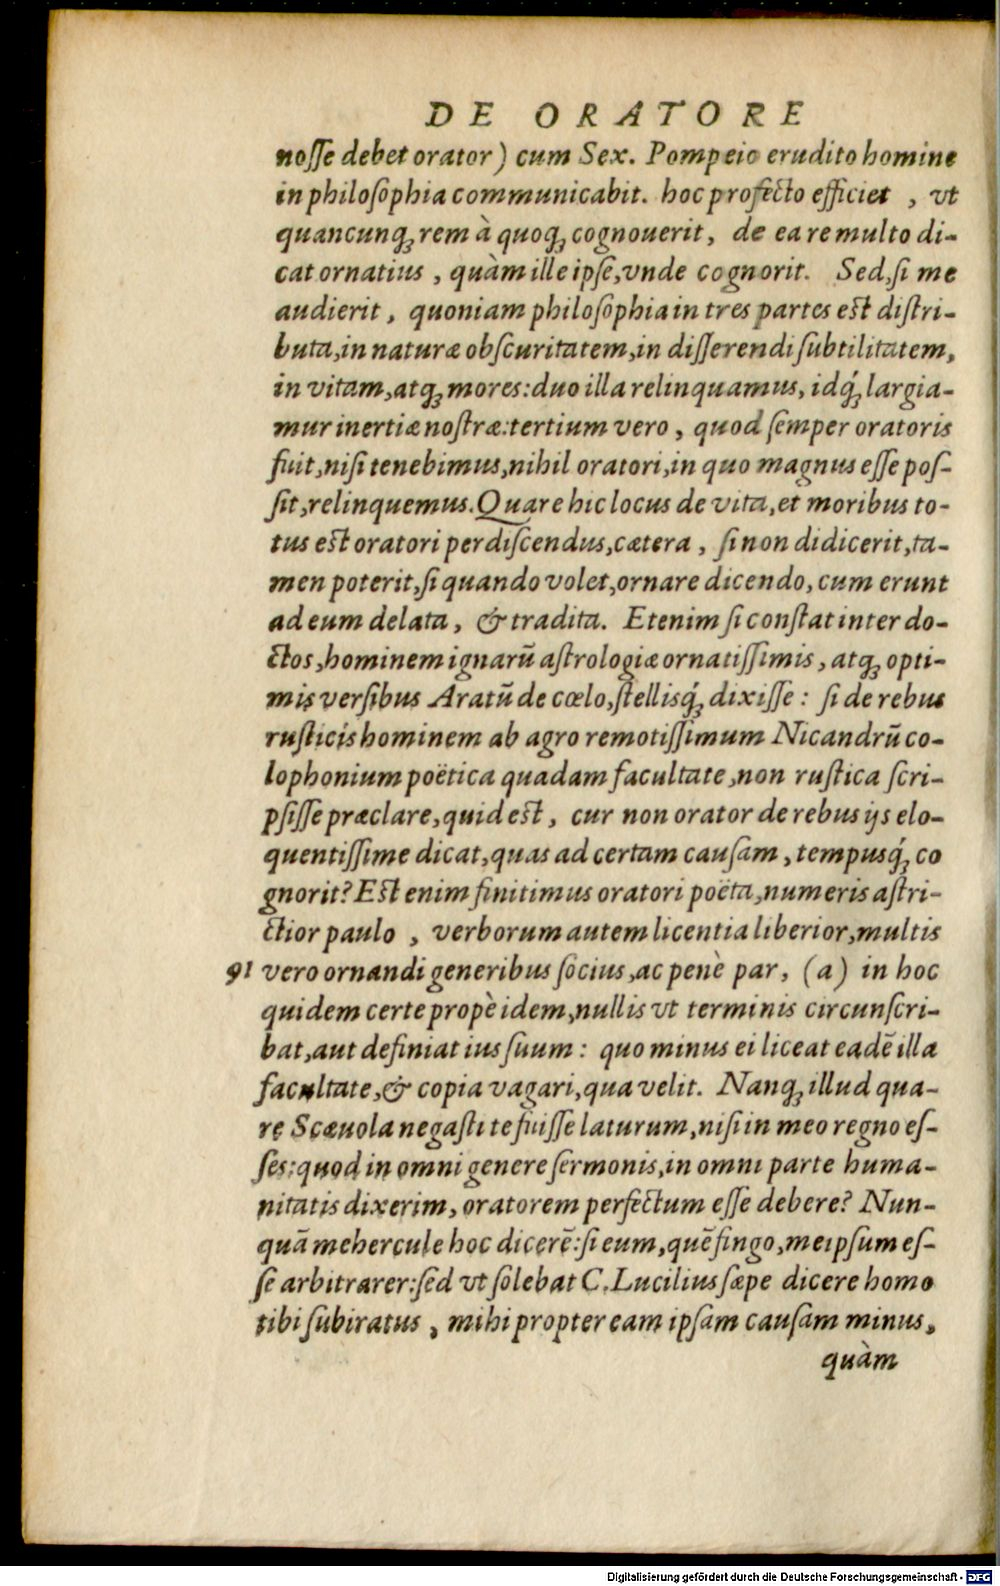 DE ORATORE
nosse debet orator) cum Sex. Pompeio erudito homine
in philosophia communicabit. hoc profecto efficiet , vt
quancunq; rem à quoq; cognouerit, de ea re multo di-
cat ornatius , quàm ille ipse, vnde cognorit. Sed, si me
audierit , quoniam philosophia in tres partes est distri-
buta, in naturæ obscuritatem, in disserendi subtilitatem,
in vitam, atq; mores: duo illa relinquamus, idq́; largia-
mur inertiæ nostræ: tertium vero , quod semper oratoris
fuit, nisi tenebimus, nihil oratori, in quo magnus esse pos-
sit, relinquemus. Quare hic locus de vita, et moribus to-
tus est oratori perdiscendus, cætera , si non didicerit, ta-
men poterit, si quando volet, ornare dicendo, cum erunt
ad eum delata, & tradita. Etenim si constat inter do-
ctos, hominem ignarū astrologiæ ornatissimis, atq; opti-
mis versibus Aratū de cœlo, stellisq́; dixisse : si de rebus
rusticis hominem ab agro remotissimum Nicandrū co-
lophonium poëtica quadam facultate, non rustica scri-
psisse præclare, quid est, cur non orator de rebus ijs elo-
quentissime dicat, quas ad certam causam, tempusq́; co
gnorit? Est enim finitimus oratori poëta, numeris astri-
ctior paulo , verborum autem licentia liberior, multis
91 vero ornandi generibus socius, ac penè par, (a) in hoc
quidem certe propè idem, nullis vt terminis circunscri-
bat, aut definiat ius suum : quo minus ei liceat eadē illa
facultate, & copia vagari, qua velit. Nanq; illud qua-
re Scæuola negasti te fuisse laturum, nisi in meo regno es-
ses: quod in omni genere sermonis, in omni parte huma-
nitatis dixerim, oratorem perfectum esse debere? Nun-
quā mehercule hoc dicerē: si eum, quē fingo, meipsum es-
se arbitrarer: sed vt solebat C. Lucilius sæpe dicere homo
tibi subiratus , mihi propter eam ipsam causam minus,
quàm
Digitalisierung gefördert durch die Deutsche Forschungsgemeinschaft - DFG